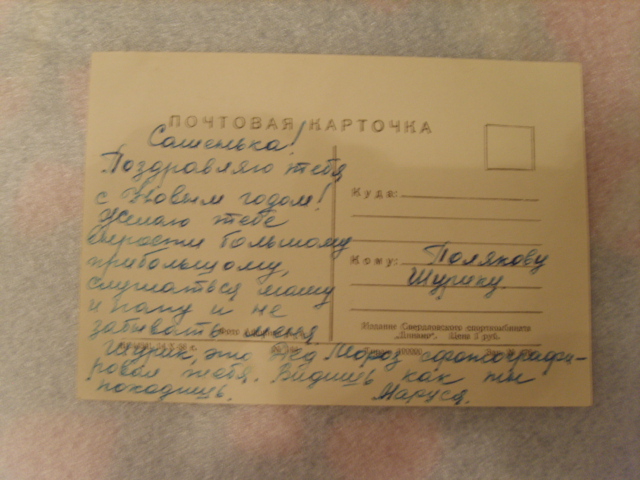 ПОЧТОВАЯ КАРТОЧКА
Сашенька!
Поздравляю тебя
с Новым годом!
Желаю тебе
вырасти большому
прибольшому,
слушаться маму
и папу и не
забывать меня
Шурик, это Дед Мороз сфотографи-
ровал тебя. Видишь как ты
походишь.
Маруся.
Куда:
Кому: Полякову
Шурику
Издание Свердловского спорткомбината
"Динамо". Цена 1 руб.